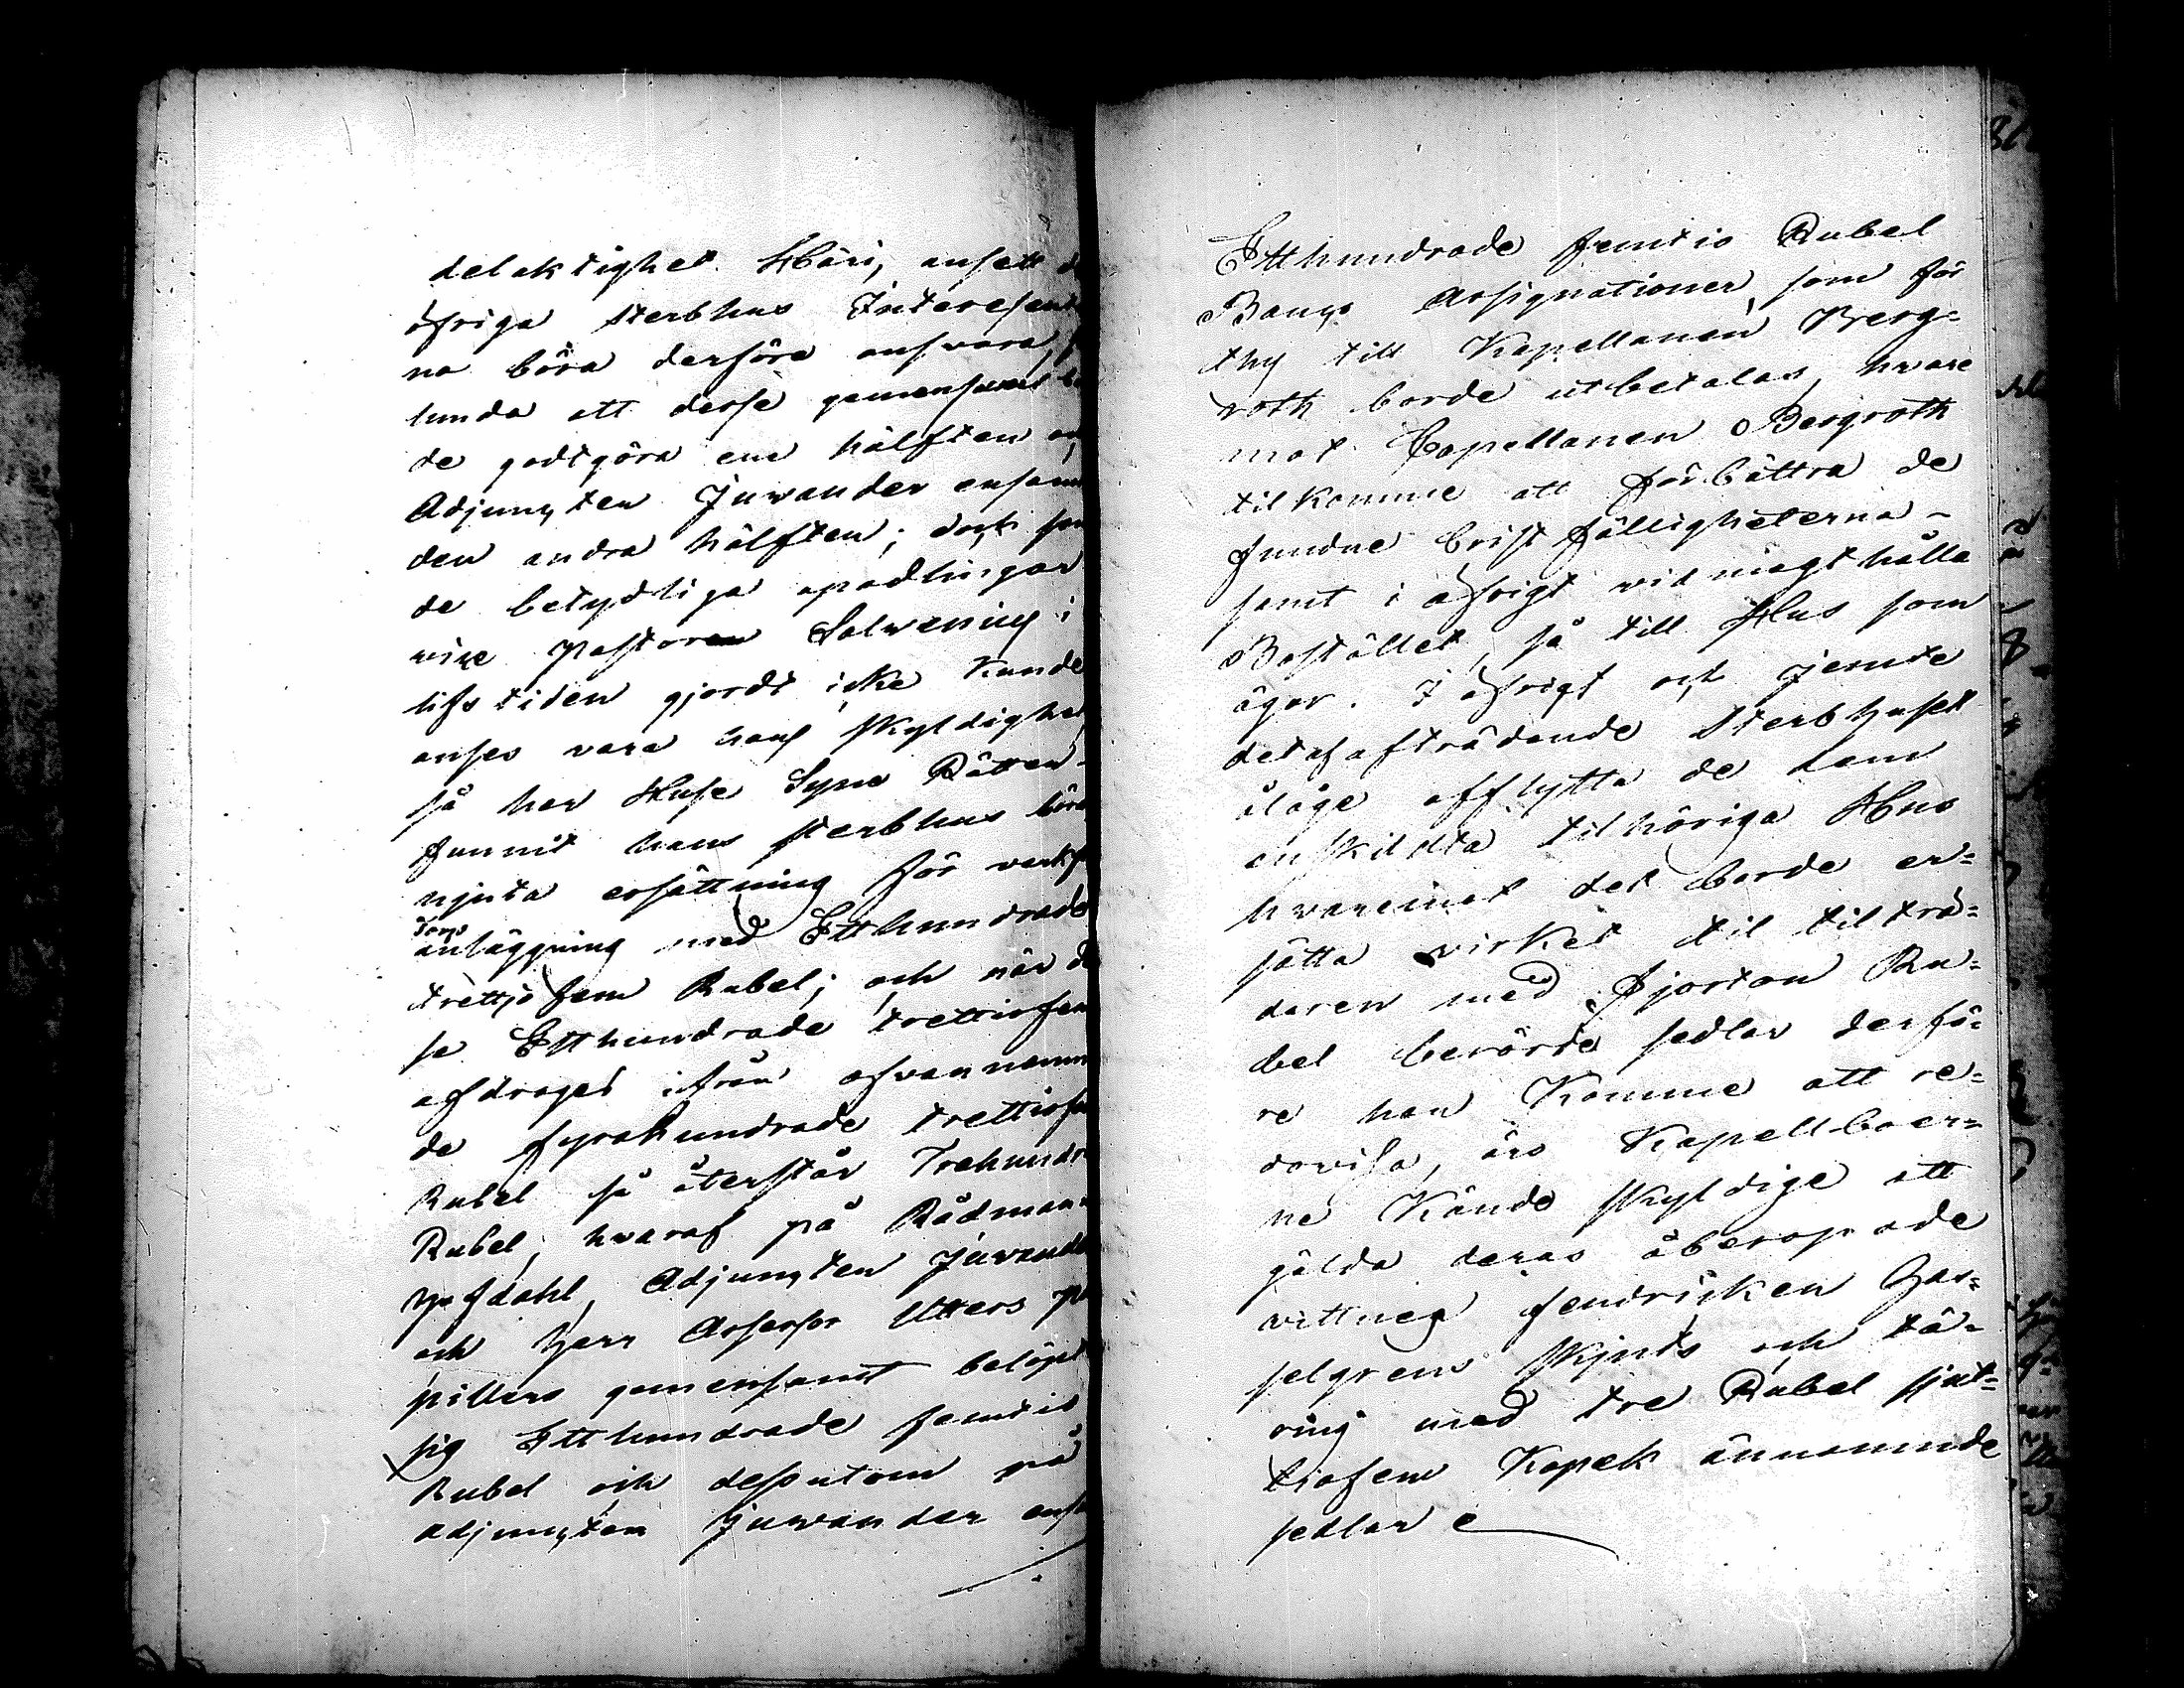 delaktighet häri, ansett d
öfriga sterbhus Interesent
na böra derföre ansvara,
lunda att desse gemensamt bo
de godtgöra ene hälften och
Adjuncten Juvander ensam
den andra hälften; doch som
de betydliga apodlingar
vice pastoren Salvenius i
lifstiden gjordt icke kunde
anses vara hans skyldighet,
så har Huse Syne Rätten
funnit hans sterbhus böra
njuta ersättning för verks
Torps
anläggning med Etthundrade
trettjofem Rubel; och när de
se Etthundrade trettiofem
afdrages ifrån ofvannemn
de fyrahundrade trettiofem
Rubel så återstår Trehundra
Rubel, hvaraf på Rådmann
Ypsdahl, Adjuncten Juvande
och Herr Assessor Utters pu
pillers gemensamt belöpt
sig Etthundrade femtio
Rubel och dessutom på
adjuncten Juvander ensa
Etthundrade femtio Rubel
Banco Assignationer, som för
thy till Kapellanen Berg-
roth borde utbetalas, hvare
mot Capellanen Bergroth
tilkomme att förbättra de
fundne bristfälligheterna
samt i öfrigt vidmagthålla
Bostället, så till Hus som
ägor. I öfrigt och jemte
det af afträdande Sterbhuset
ålåge afflytta de dem
enskildta tilhöriga Hus
hvareinet det borde er-
sätta virket til tilträ-
daren med Fjorton Ru-
bel berörde sedlar derfö-
re han komme att re-
dovisa, äro Kapellboer-
ne kände skyldige att
gälda deras åberopade
vittnes fendricken Has-
selgrens skjuts och tä-
ring med tre Rubel sjut-
tiofem Kopek ännämnde
sedlar